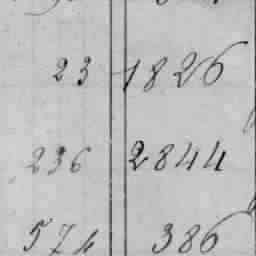 23 1826
236 2844
574 386